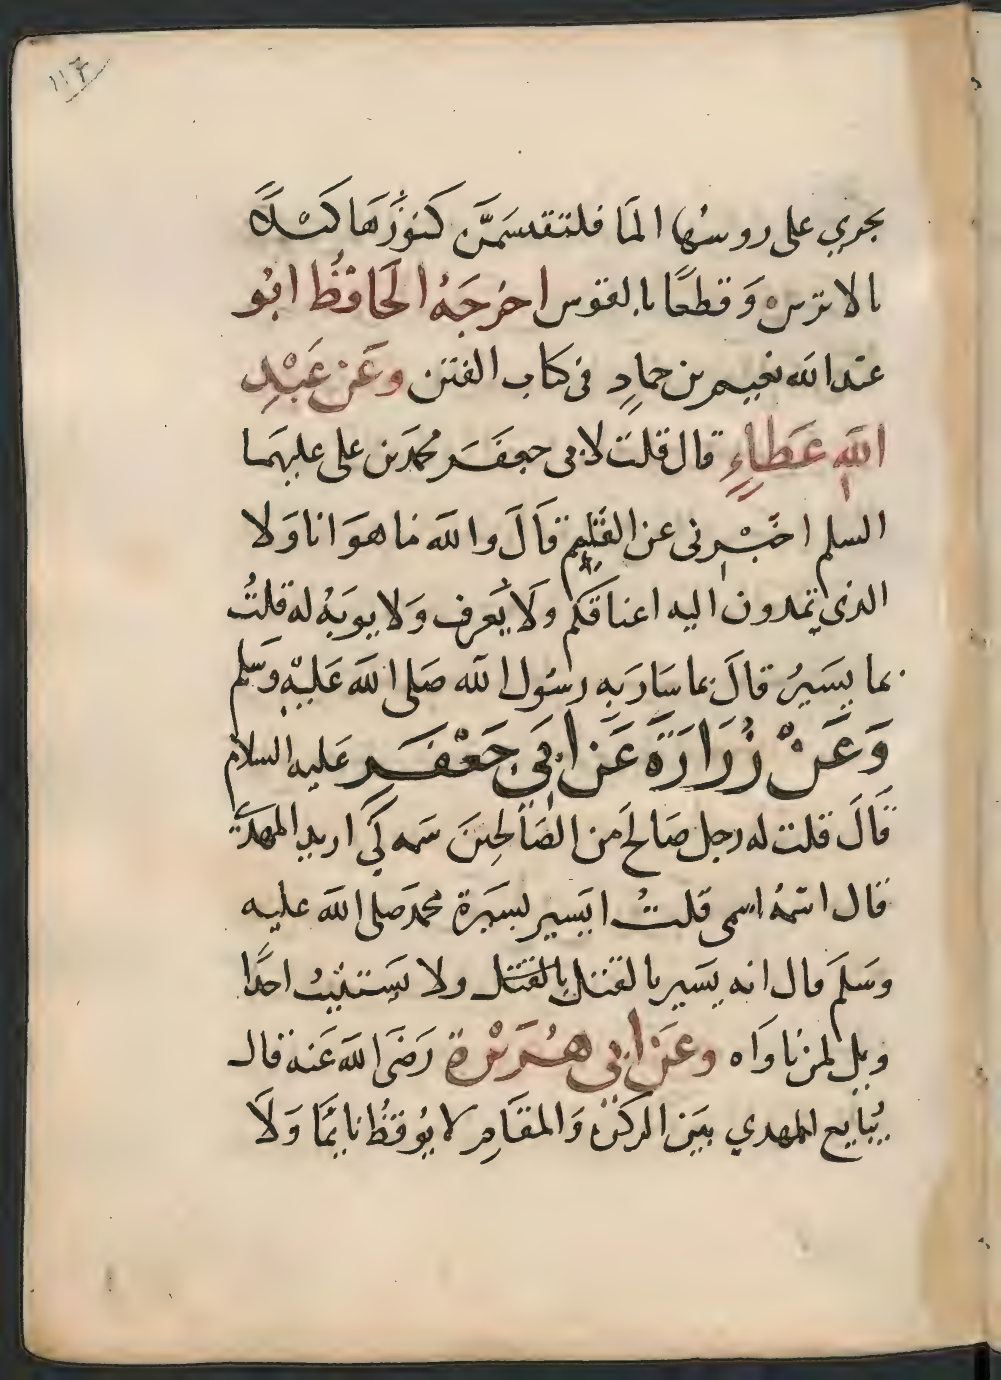 ١١٣
يجري على روسها الما فلتقتسمن كنوزها كيلاً
بالاترس وقطعًا بالفوس اخرجه الحافظ ابو
عبد الله نعيم بن حماد في كتاب الفتن وعن عبد
الله عطاءٍ قال قلت لابى جعفر محمد بن على عليهما
السلم اخبرنى عن القايم قال والله ما هو انا ولا
الذى تمدون اليه اعناقكم ولا يعرف ولا يوبه له قلتُ
بما يسير قال بما سار به رسول الله صلى الله عليه وسلم
وعن زرارة عن ابى جعفر عليه السلام
قال قلت له رجل صالح من الصالحين سمه لى اريد المهدى
قال اسمه اسمى قلت ايسير بسيرة محمد صلى الله عليه
وسلم قال انه يسير بالقتل بالقتل ولا يستتيب احدًا
ويل لمن ناواه وعن ابى هريرة رضى الله عنه قال
يُبايع المهدي بين الركن والمقام لا يوقظ نايمًا ولا